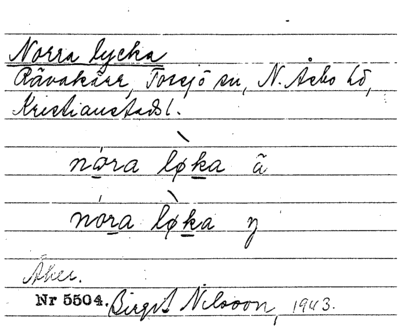 Norra lycka
Rävakärr, Torsjö sn, N. Åsbo hd,
Kristianstads l.
nóra lø̀ka ã
nóra lø̀ka y
Åker.
Nr 5504. Birgit Nilsson, 1943.